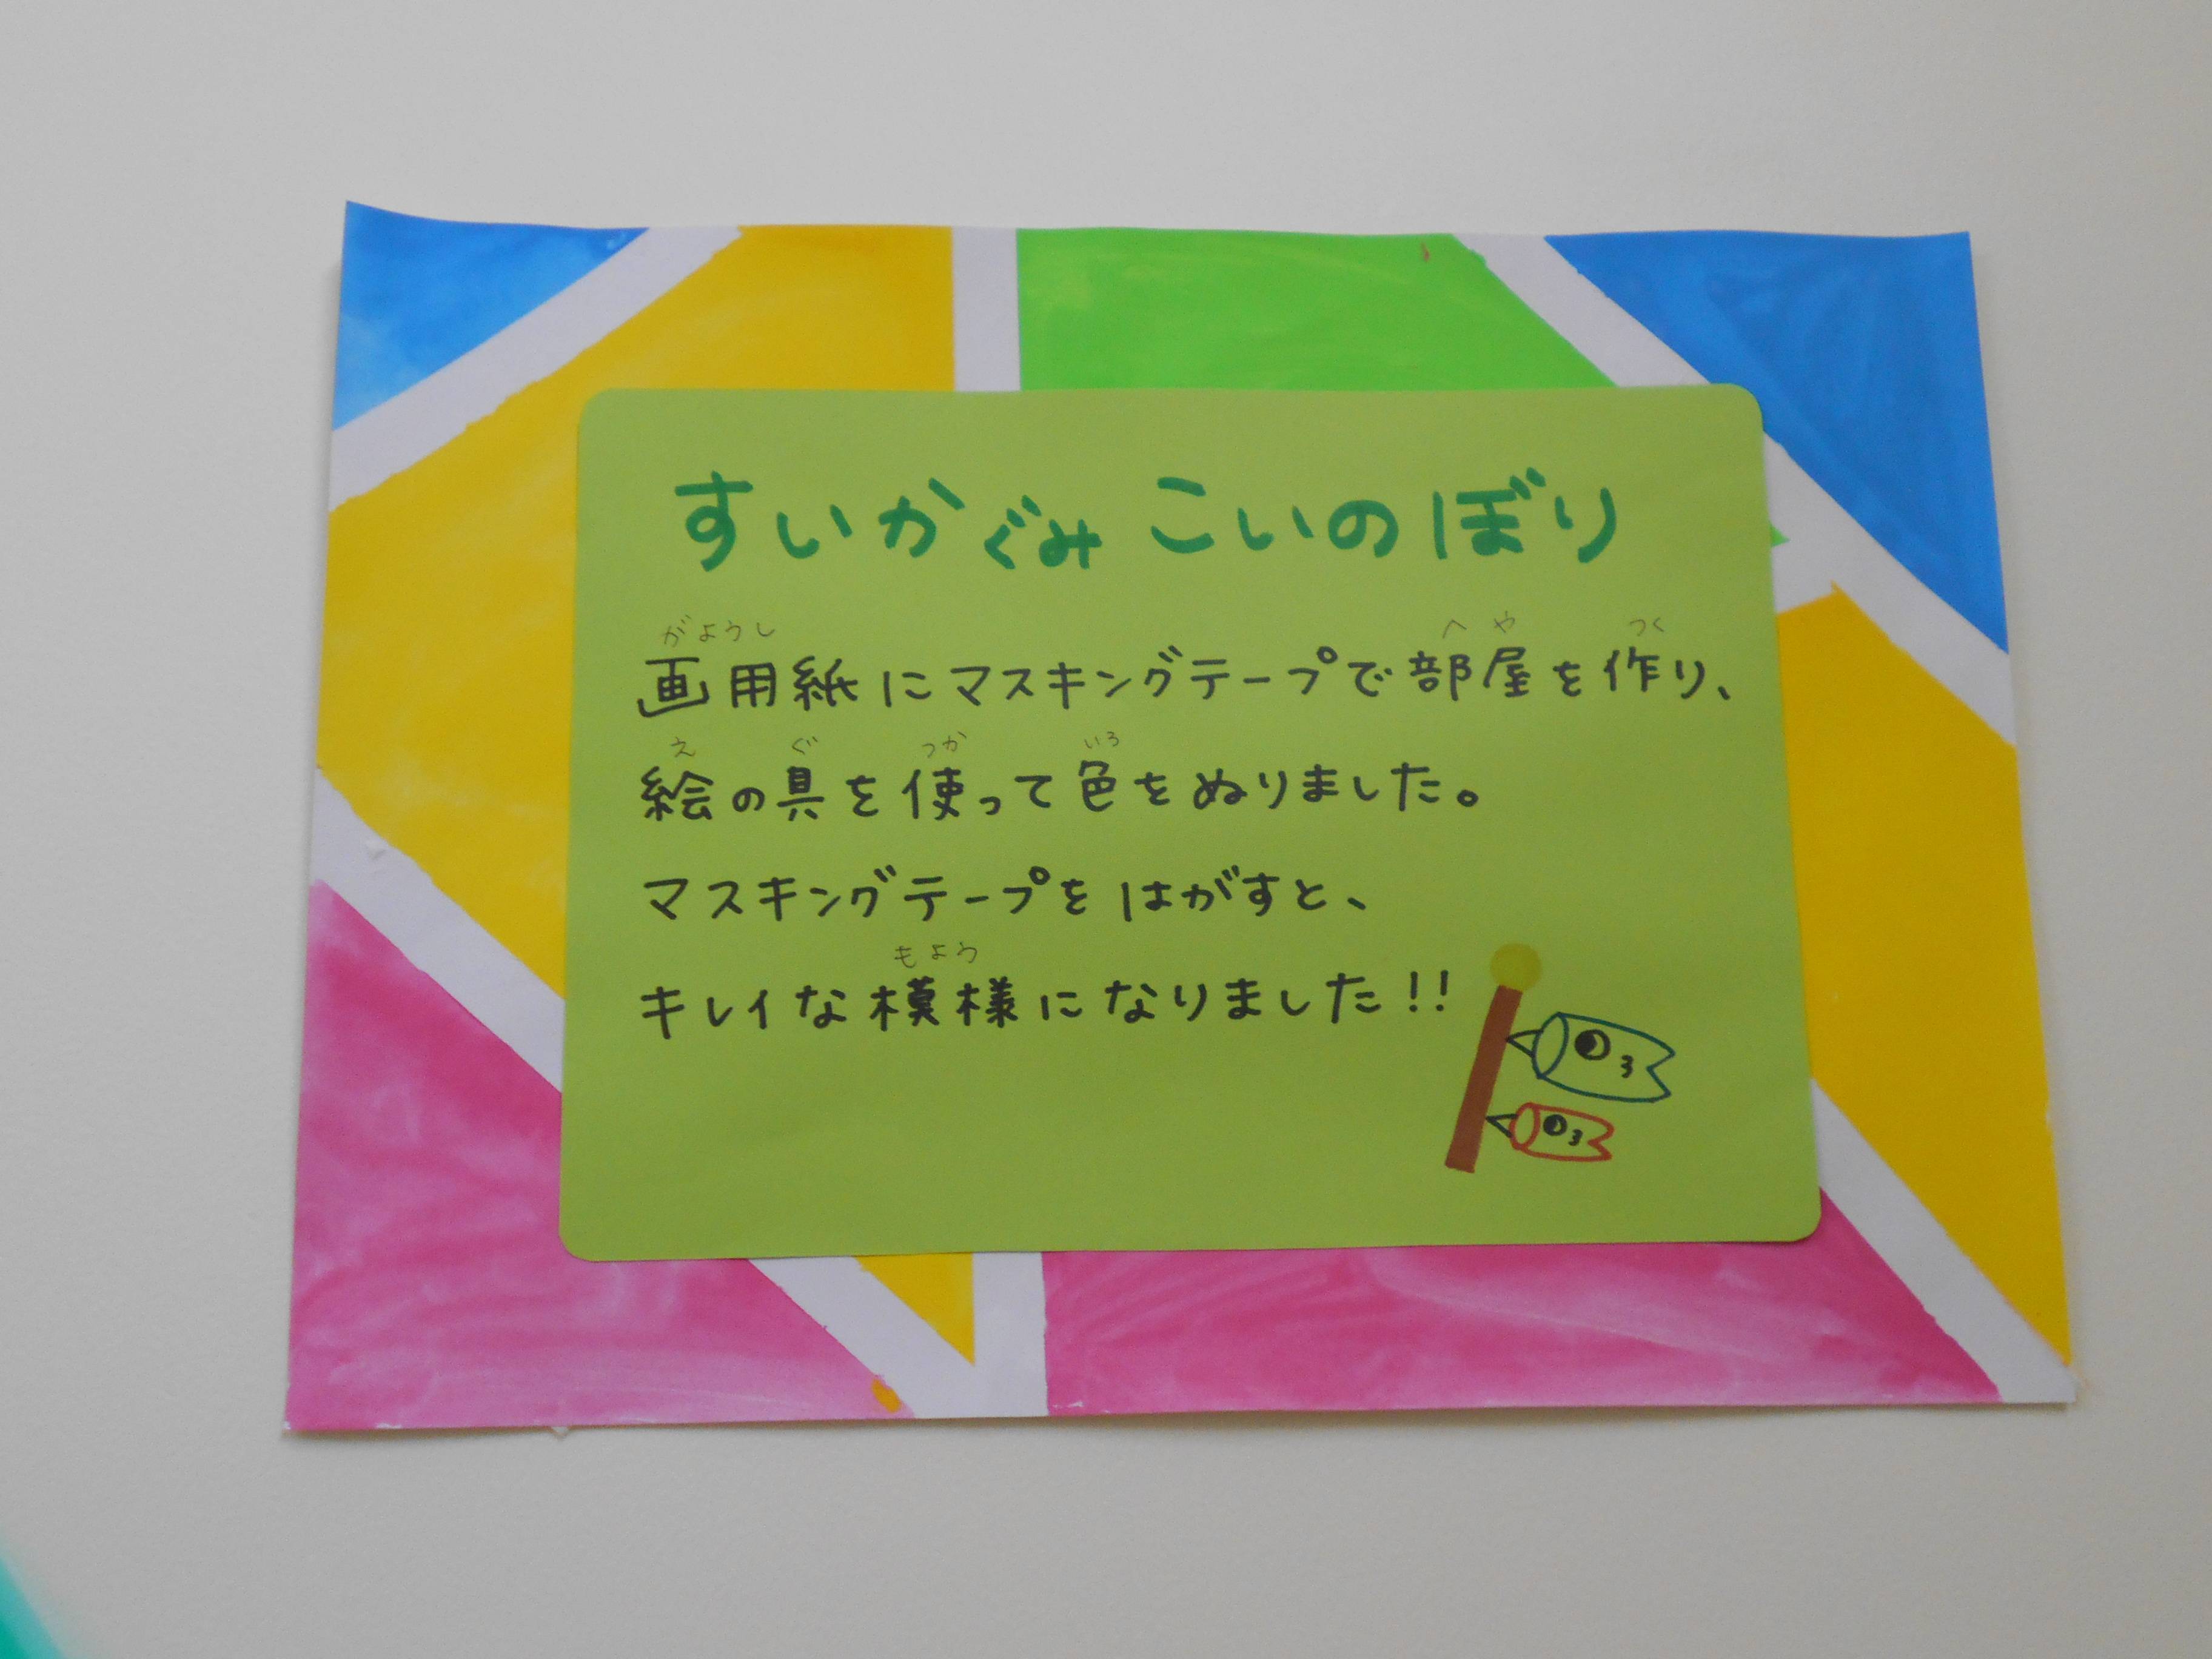 すいかぐみ こいのぼり
がようし へや つく
画用紙にマスキングテープで部屋を作り、
え ぐ つか いろ
絵の具を使って色をぬりました。
マスキングテープをはがすと、
もよう
キレイな模様になりました!!